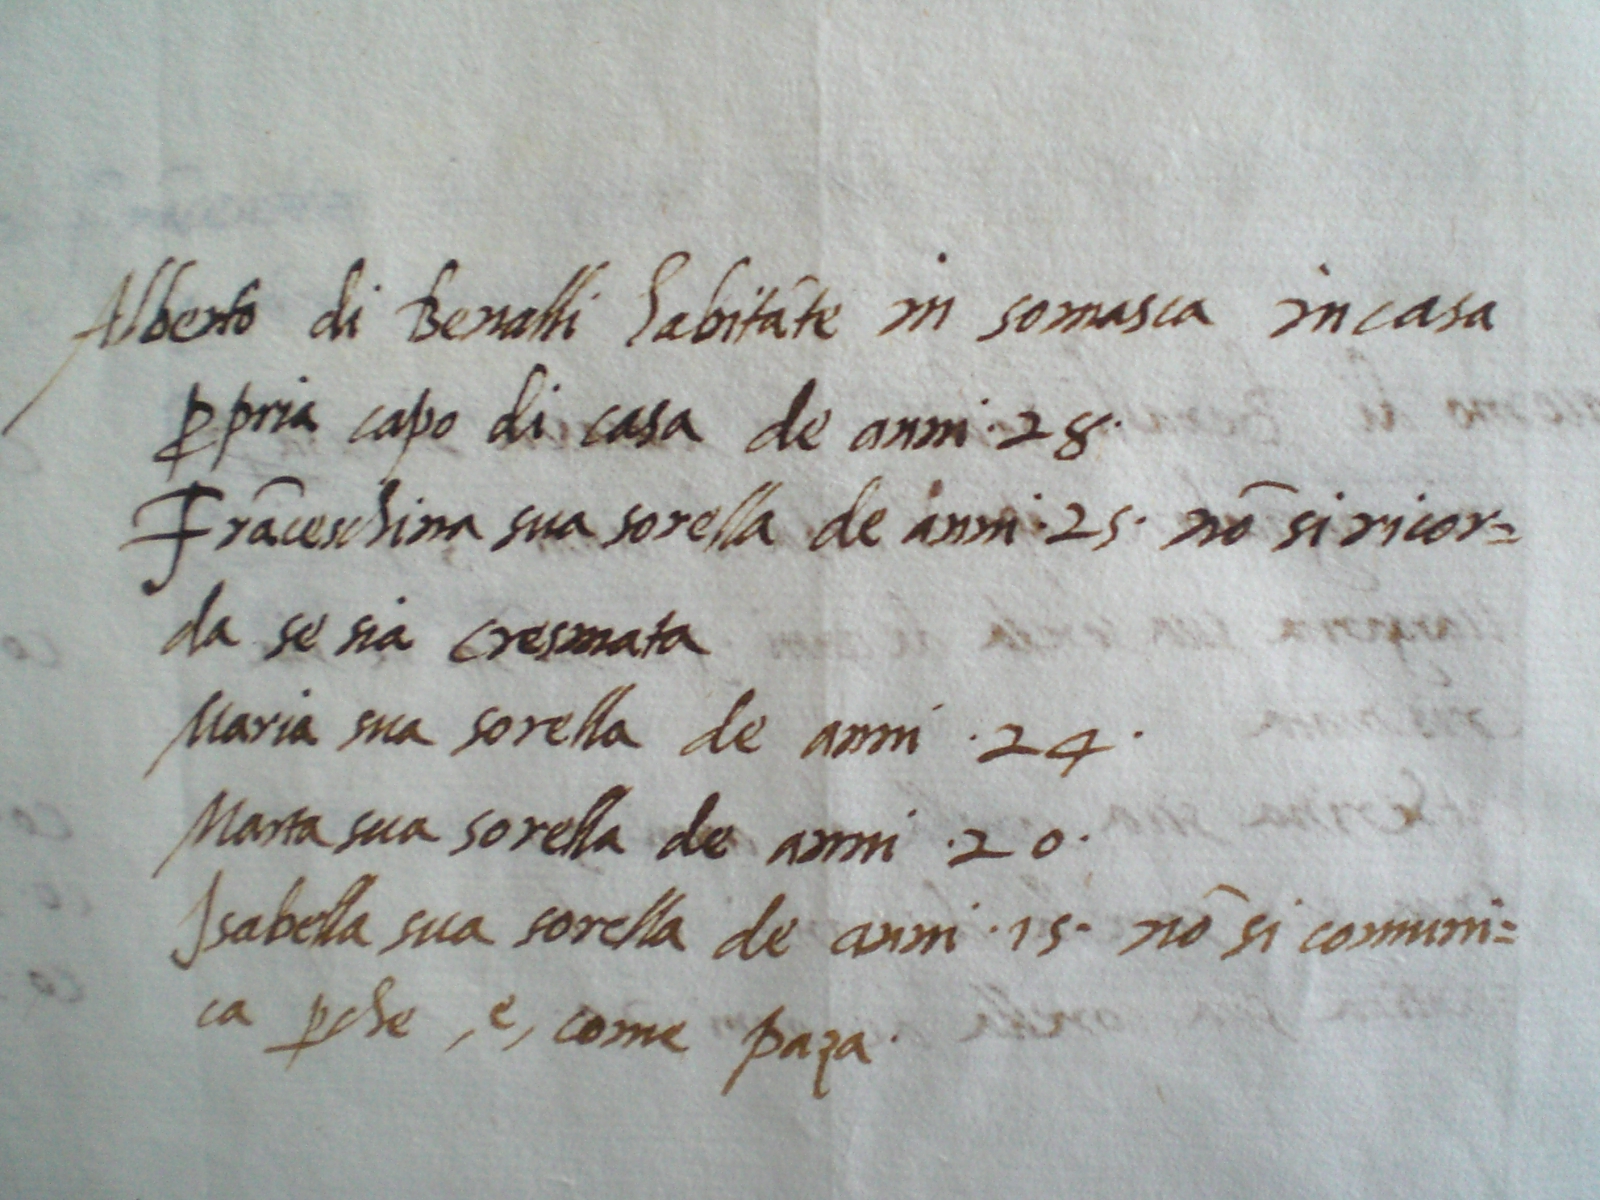 Alberto di Benalli habitãte in somasca in casa
ꝑpria capo di casa de anni ·28·
Frãceschina sua sorella de anni ·25· nõ si ricor=
da se sia cresmata
Maria sua sorella de anni ·24·
Marta sua sorella de anni ·20·
Isabella sua sorella de anni ·15· nõ si comuni=
ca ꝑche ,e, come paza·